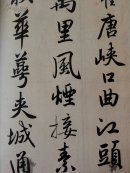 唐峽口曲江頭
萬里風煙接素
華萼夾城通